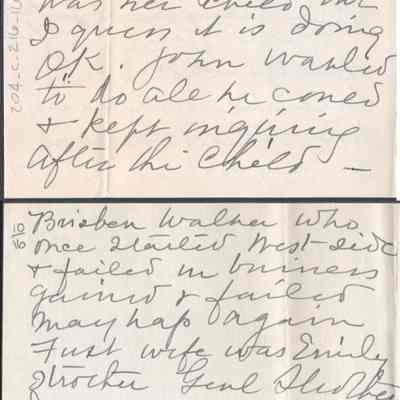 was her child but
I guess it is doing
OK. John wanted
to do all he coued
& kept inquiring
after the child —
Brisben Walker who
once started West-side
& failed in business
gained & failed
mayhap again
First wife was Emily
Strother Genl Strother
204-C-216-16